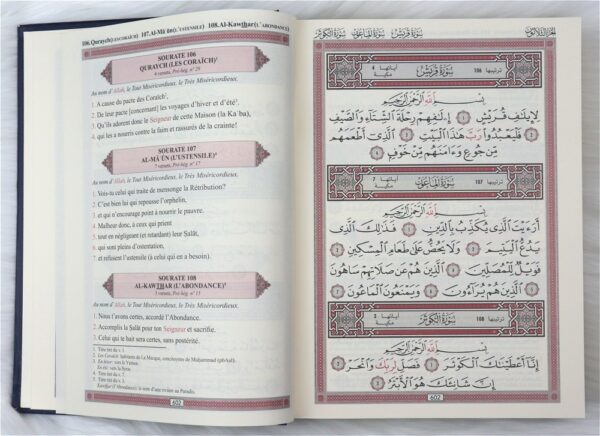 106.Quraych(LES CORAÏCH) 107.Al-Mâ'ûn(L'USTENSILE) 108.Al-Kawthar(L'ABONDANCE)
SOURATE 106
QURAYCH (LES CORAÏCH)
4 versets, Pré-hég. n° 29
Au nom d'Allah, le Tout Miséricordieux, le Très Miséricordieux.
1. A cause du pacte des Coraïch¹,
2. De leur pacte [concernant] les voyages d'hiver et d'été².
3. Qu'ils adorent donc le Seigneur de cette Maison (la Ka'ba),
4. qui les a nourris contre la faim et rassurés de la crainte!
SOURATE 107
AL-MÂ'ÛN (L'USTENSILE)³
7 versets, Pré-hég. n° 17
Au nom d'Allah, le Tout Miséricordieux, le Très Miséricordieux.
1. Vois-tu celui qui traite de mensonge la Rétribution?
2. C'est bien lui qui repousse l'orphelin,
3. et qui n'encourage point à nourrir le pauvre.
4. Malheur donc, à ceux qui prient
5. tout en négligeant (et retardant) leur Salât,
6. qui sont pleins d'ostentation,
7. et refusent l'ustensile (à celui qui en a besoin).
SOURATE 108
AL-KAWTHAR (L'ABONDANCE)
3 versets, Pré-hég. n° 15
Au nom d'Allah, le Tout Miséricordieux, le Très Miséricordieux.
1. Nous t'avons certes, accordé l'Abondance.
2. Accomplis la Salât pour ton Seigneur et sacrifie.
3. Celui qui te hait sera certes, sans postérité.
602
سُورَةُ قُرَيْشٍ سُورَةُ المَاعُونِ سُورَةُ الكَوْثَرِ
ترتيبها 106 سُورَةُ قُرَيْشٍ آياتها 4 مكية
بِسْمِ اللَّهِ الرَّحْمَٰنِ الرَّحِيمِ
لِإِيلَٰفِ قُرَيْشٍ ١ إِۦلَٰفِهِمْ رِحْلَةَ الشِّتَاءِ وَالصَّيْفِ
٢ فَلْيَعْبُدُوا رَبَّ هَٰذَا الْبَيْتِ ٣ الَّذِي أَطْعَمَهُم
مِّن جُوعٍ وَءَامَنَهُم مِّنْ خَوْفٍ ٤
ترتيبها 107 سُورَةُ المَاعُونِ آياتها 7 مكية
بِسْمِ اللَّهِ الرَّحْمَٰنِ الرَّحِيمِ
أَرَءَيْتَ الَّذِي يُكَذِّبُ بِالدِّينِ ١ فَذَٰلِكَ الَّذِي
يَدُعُّ الْيَتِيمَ ٢ وَلَا يَحُضُّ عَلَىٰ طَعَامِ الْمِسْكِينِ ٣
فَوَيْلٌ لِّلْمُصَلِّينَ ٤ الَّذِينَ هُمْ عَن صَلَاتِهِمْ سَاهُونَ
٥ الَّذِينَ هُمْ يُرَاءُونَ ٦ وَيَمْنَعُونَ الْمَاعُونَ ٧
ترتيبها 108 سُورَةُ الكَوْثَرِ آياتها 3 مكية
بِسْمِ اللَّهِ الرَّحْمَٰنِ الرَّحِيمِ
إِنَّا أَعْطَيْنَٰكَ الْكَوْثَرَ ١ فَصَلِّ لِرَبِّكَ وَانْحَرْ ٢
إِنَّ شَانِئَكَ هُوَ الْأَبْتَرُ ٣
602